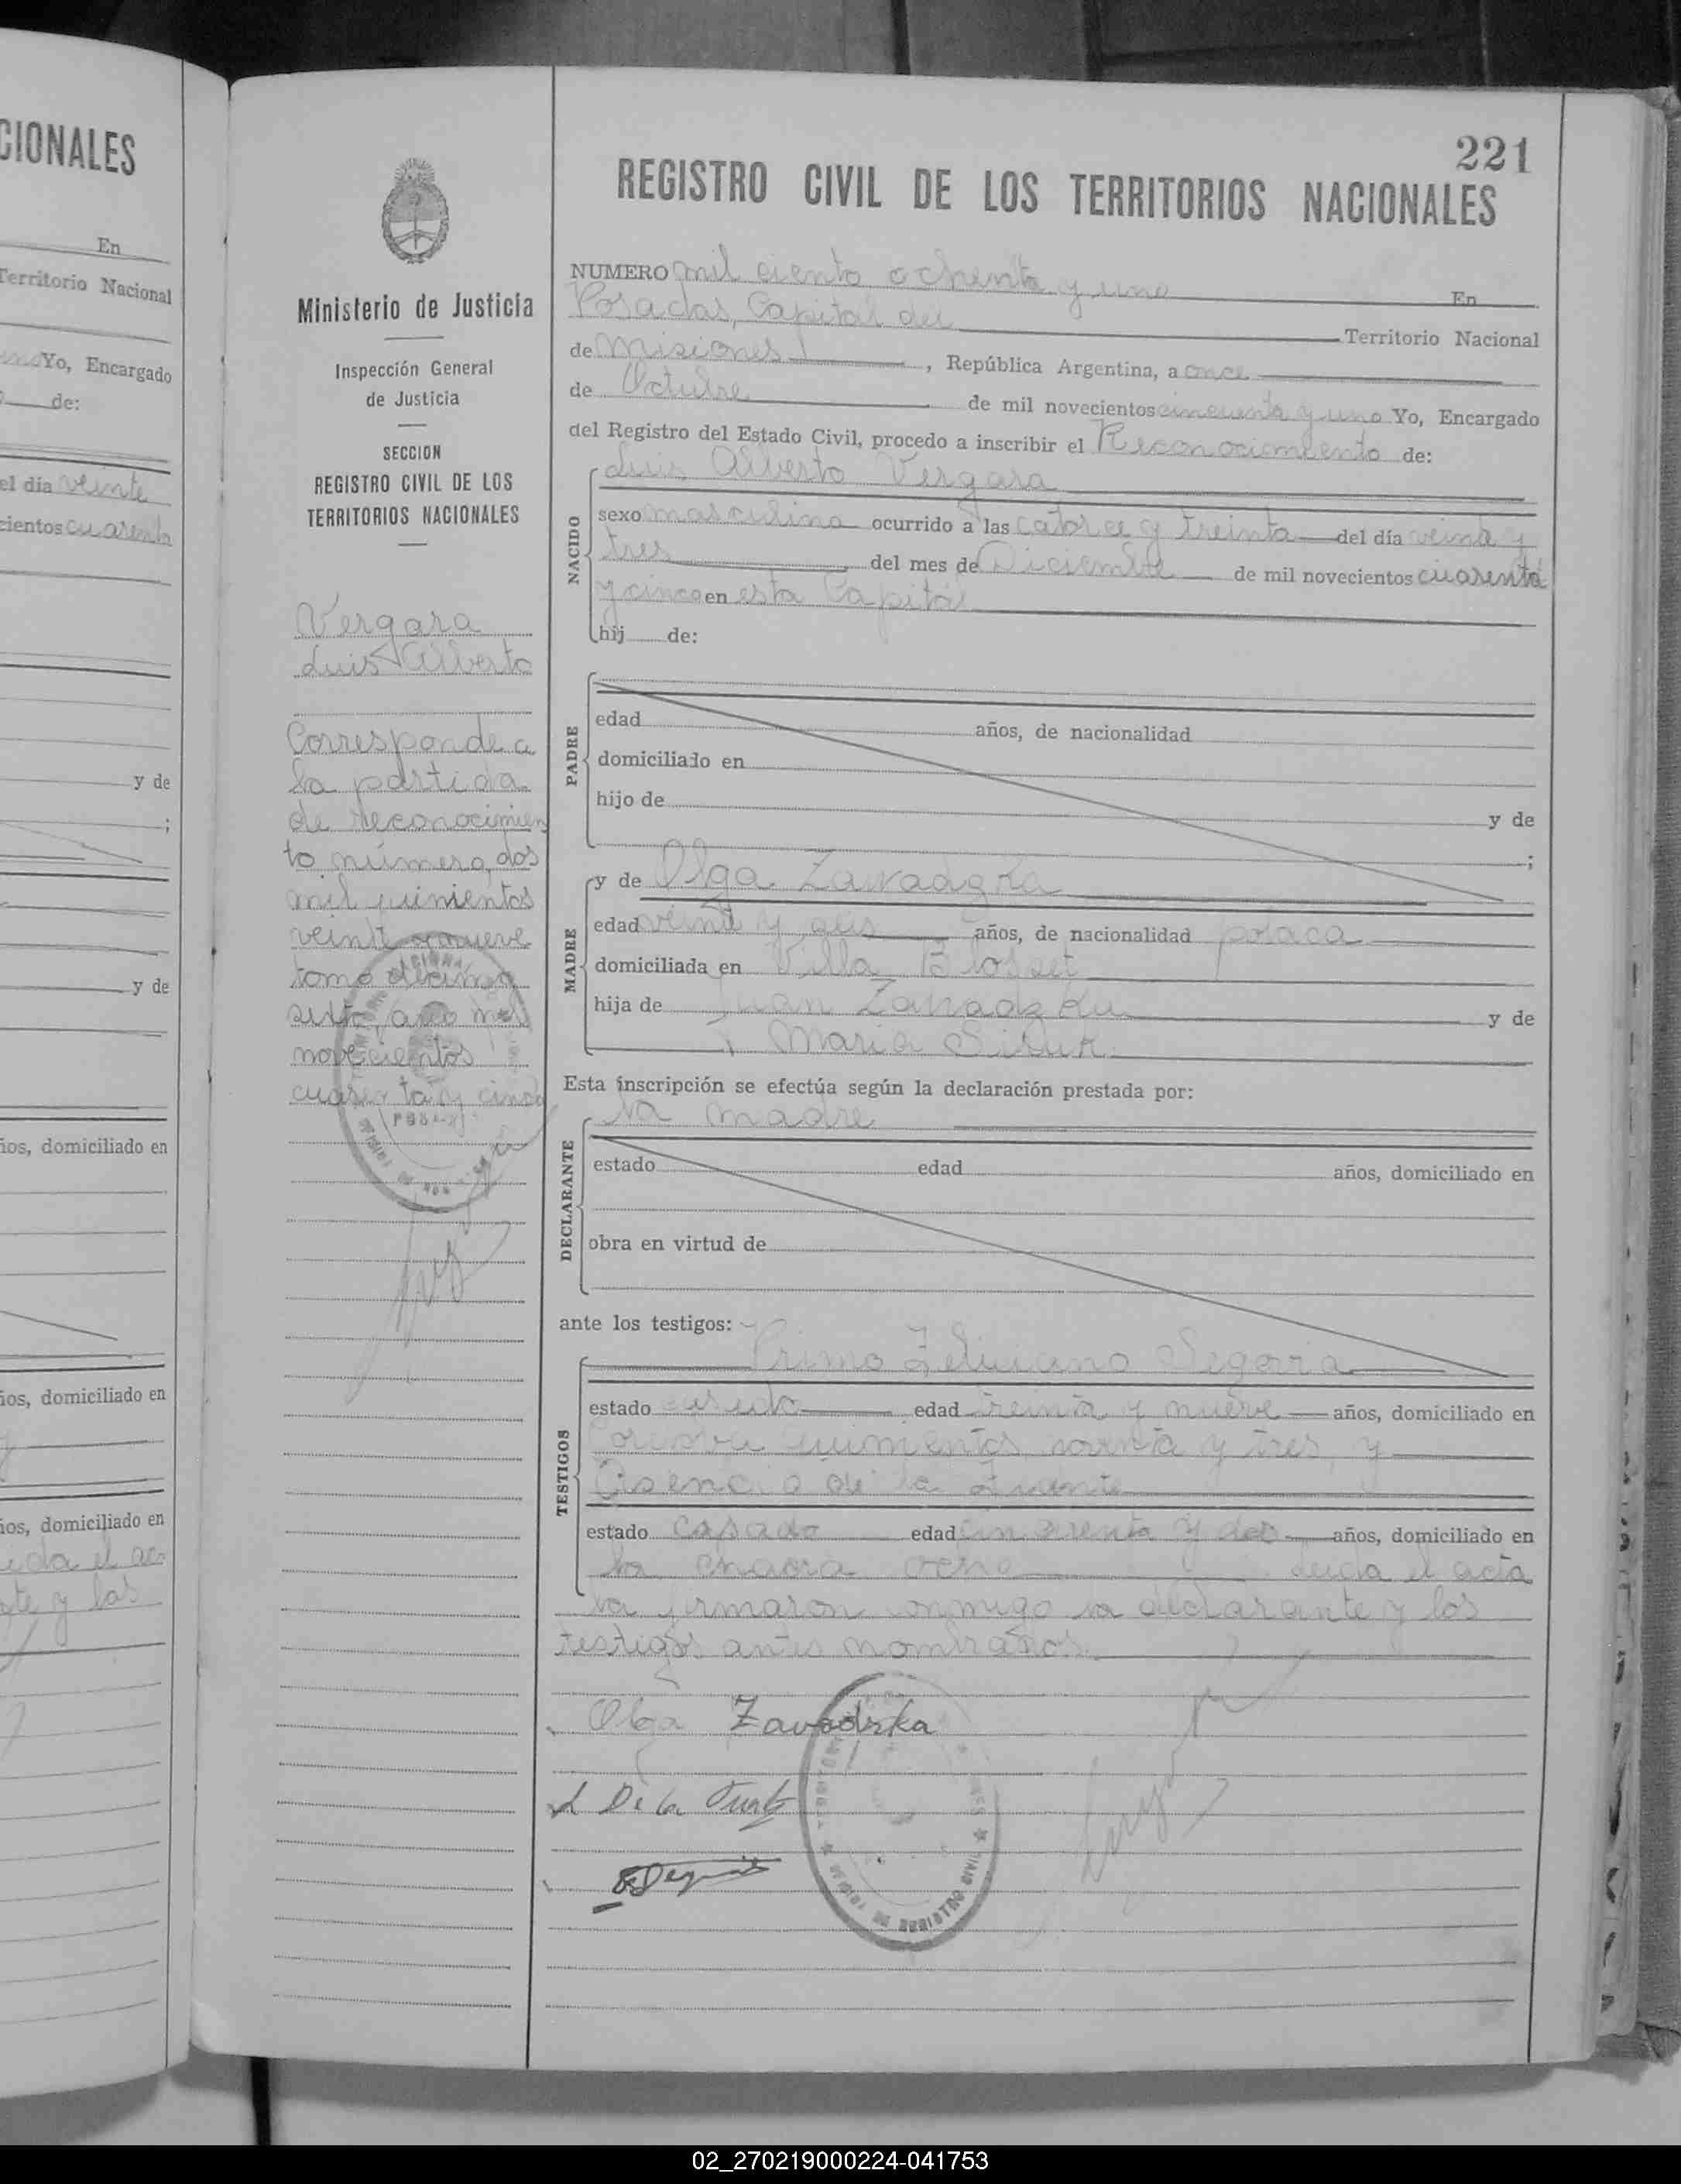 CIONALES
En
Territorio Nacional
Yo, Encargado
de:
el día veinte
cientos cuarenta
y de
;
y de
ños, domiciliado en
ños, domiciliado en
ños, domiciliado en
y las
Ministerio de Justicia
Inspección General
de Justicia
SECCION
REGISTRO CIVIL DE LOS
TERRITORIOS NACIONALES
Vergara
Luis Alberto
Corresponde a
la partida
de reconocimien
to número dos
mil quinientos
veinte y nueve
tomo décimo
sexto, año mil
novecientos
cuarenta y cinco
221
REGISTRO CIVIL DE LOS TERRITORIOS NACIONALES
NUMERO mil ciento ochenta y uno En
Posadas, Capital del Territorio Nacional
de Misiones, República Argentina, a once
de Octubre de mil novecientos cincuenta y uno Yo, Encargado
del Registro del Estado Civil, procedo a inscribir el Reconocimiento de:
Luis Alberto Vergara
NACIDO
sexo masculino ocurrido a las catorce y treinta del día veinte y
tres del mes de Diciembre de mil novecientos cuarenta
y cinco en esta Capital
hij de:
PADRE
edad años, de nacionalidad
domiciliado en
hijo de y de
;
MADRE
y de Olga Zawadzka
edad veinte y seis años, de nacionalidad polaca
domiciliada en Villa Blosset
hija de Juan Zawadzku y de
Maria
Esta inscripción se efectúa según la declaración prestada por:
la madre
DECLARANTE
estado edad años, domiciliado en
obra en virtud de
ante los testigos:
Primo Feliciano Segovia
TESTIGOS
estado casado edad treinta y nueve años, domiciliado en
quinientos noventa y tres, y
Asencio de la Fuente
estado casado edad cincuenta y dos años, domiciliado en
la chacra ocho Leida el acta
la firmaron conmigo la declarante y los
testigos antes nombrados.
Olga Zavodska
De la Fuente
REGISTRO CIVIL
02_270219000224-041753